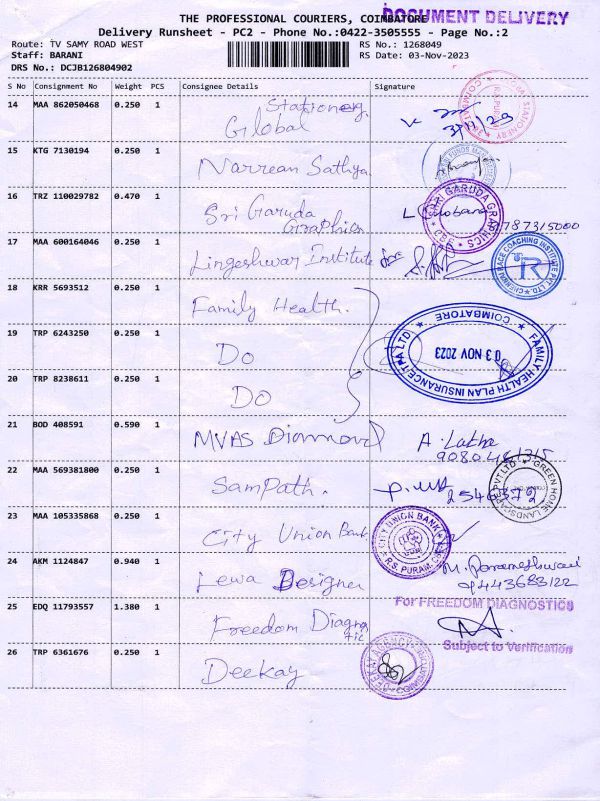 THE PROFESSIONAL COURIERS, COIMBATORE
DOCUMENT DELIVERY
Delivery Runsheet - PC2 - Phone No.:0422-3505555 - Page No.:2
Route: TV SAMY ROAD WEST
RS No.: 1268049
Staff: BARANI
RS Date: 03-Nov-2023
DRS No.: DCJB126804902
S No Consignment No Weight PCS Consignee Details Signature
14 MAA 862050468 0.250 1 Stationery
Global
3/11/23
15 KTG 7130194 0.250 1
Narrean Sathya
16 TRZ 110029782 0.470 1
Sri Garuda
Graphics
SRI GARUDA GRAPHICS
787315000
17 MAA 600164046 0.250 1
Lingeshwar Institute for
CHENNAI RACE COACHING INSTITUTE PVT LTD
18 KRR 5693512 0.250 1
Family Health.
FAMILY HEALTH PLAN INSURANCE (TPA) LTD
COIMBATORE
03 NOV 2023
19 TRP 6243250 0.250 1
Do
20 TRP 8238611 0.250 1
Do
21 BOD 408591 0.590 1
MVAS Diamond
A. Latha
9080461315
22 MAA 569381800 0.250 1
Sampath.
2546372
GREEN HOME LANDSCAPE PVT LTD
23 MAA 105335868 0.250 1
City Union Bank
CITY UNION BANK
R.S. PURAM
24 AKM 1124847 0.940 1
Lewa Designer
M. Parameshwari
9443683122
25 EDQ 11793557 1.380 1
For FREEDOM DIAGNOSTICS
Freedom Diagnos
tic
Subject to Verification
26 TRP 6361676 0.250 1
Deekay